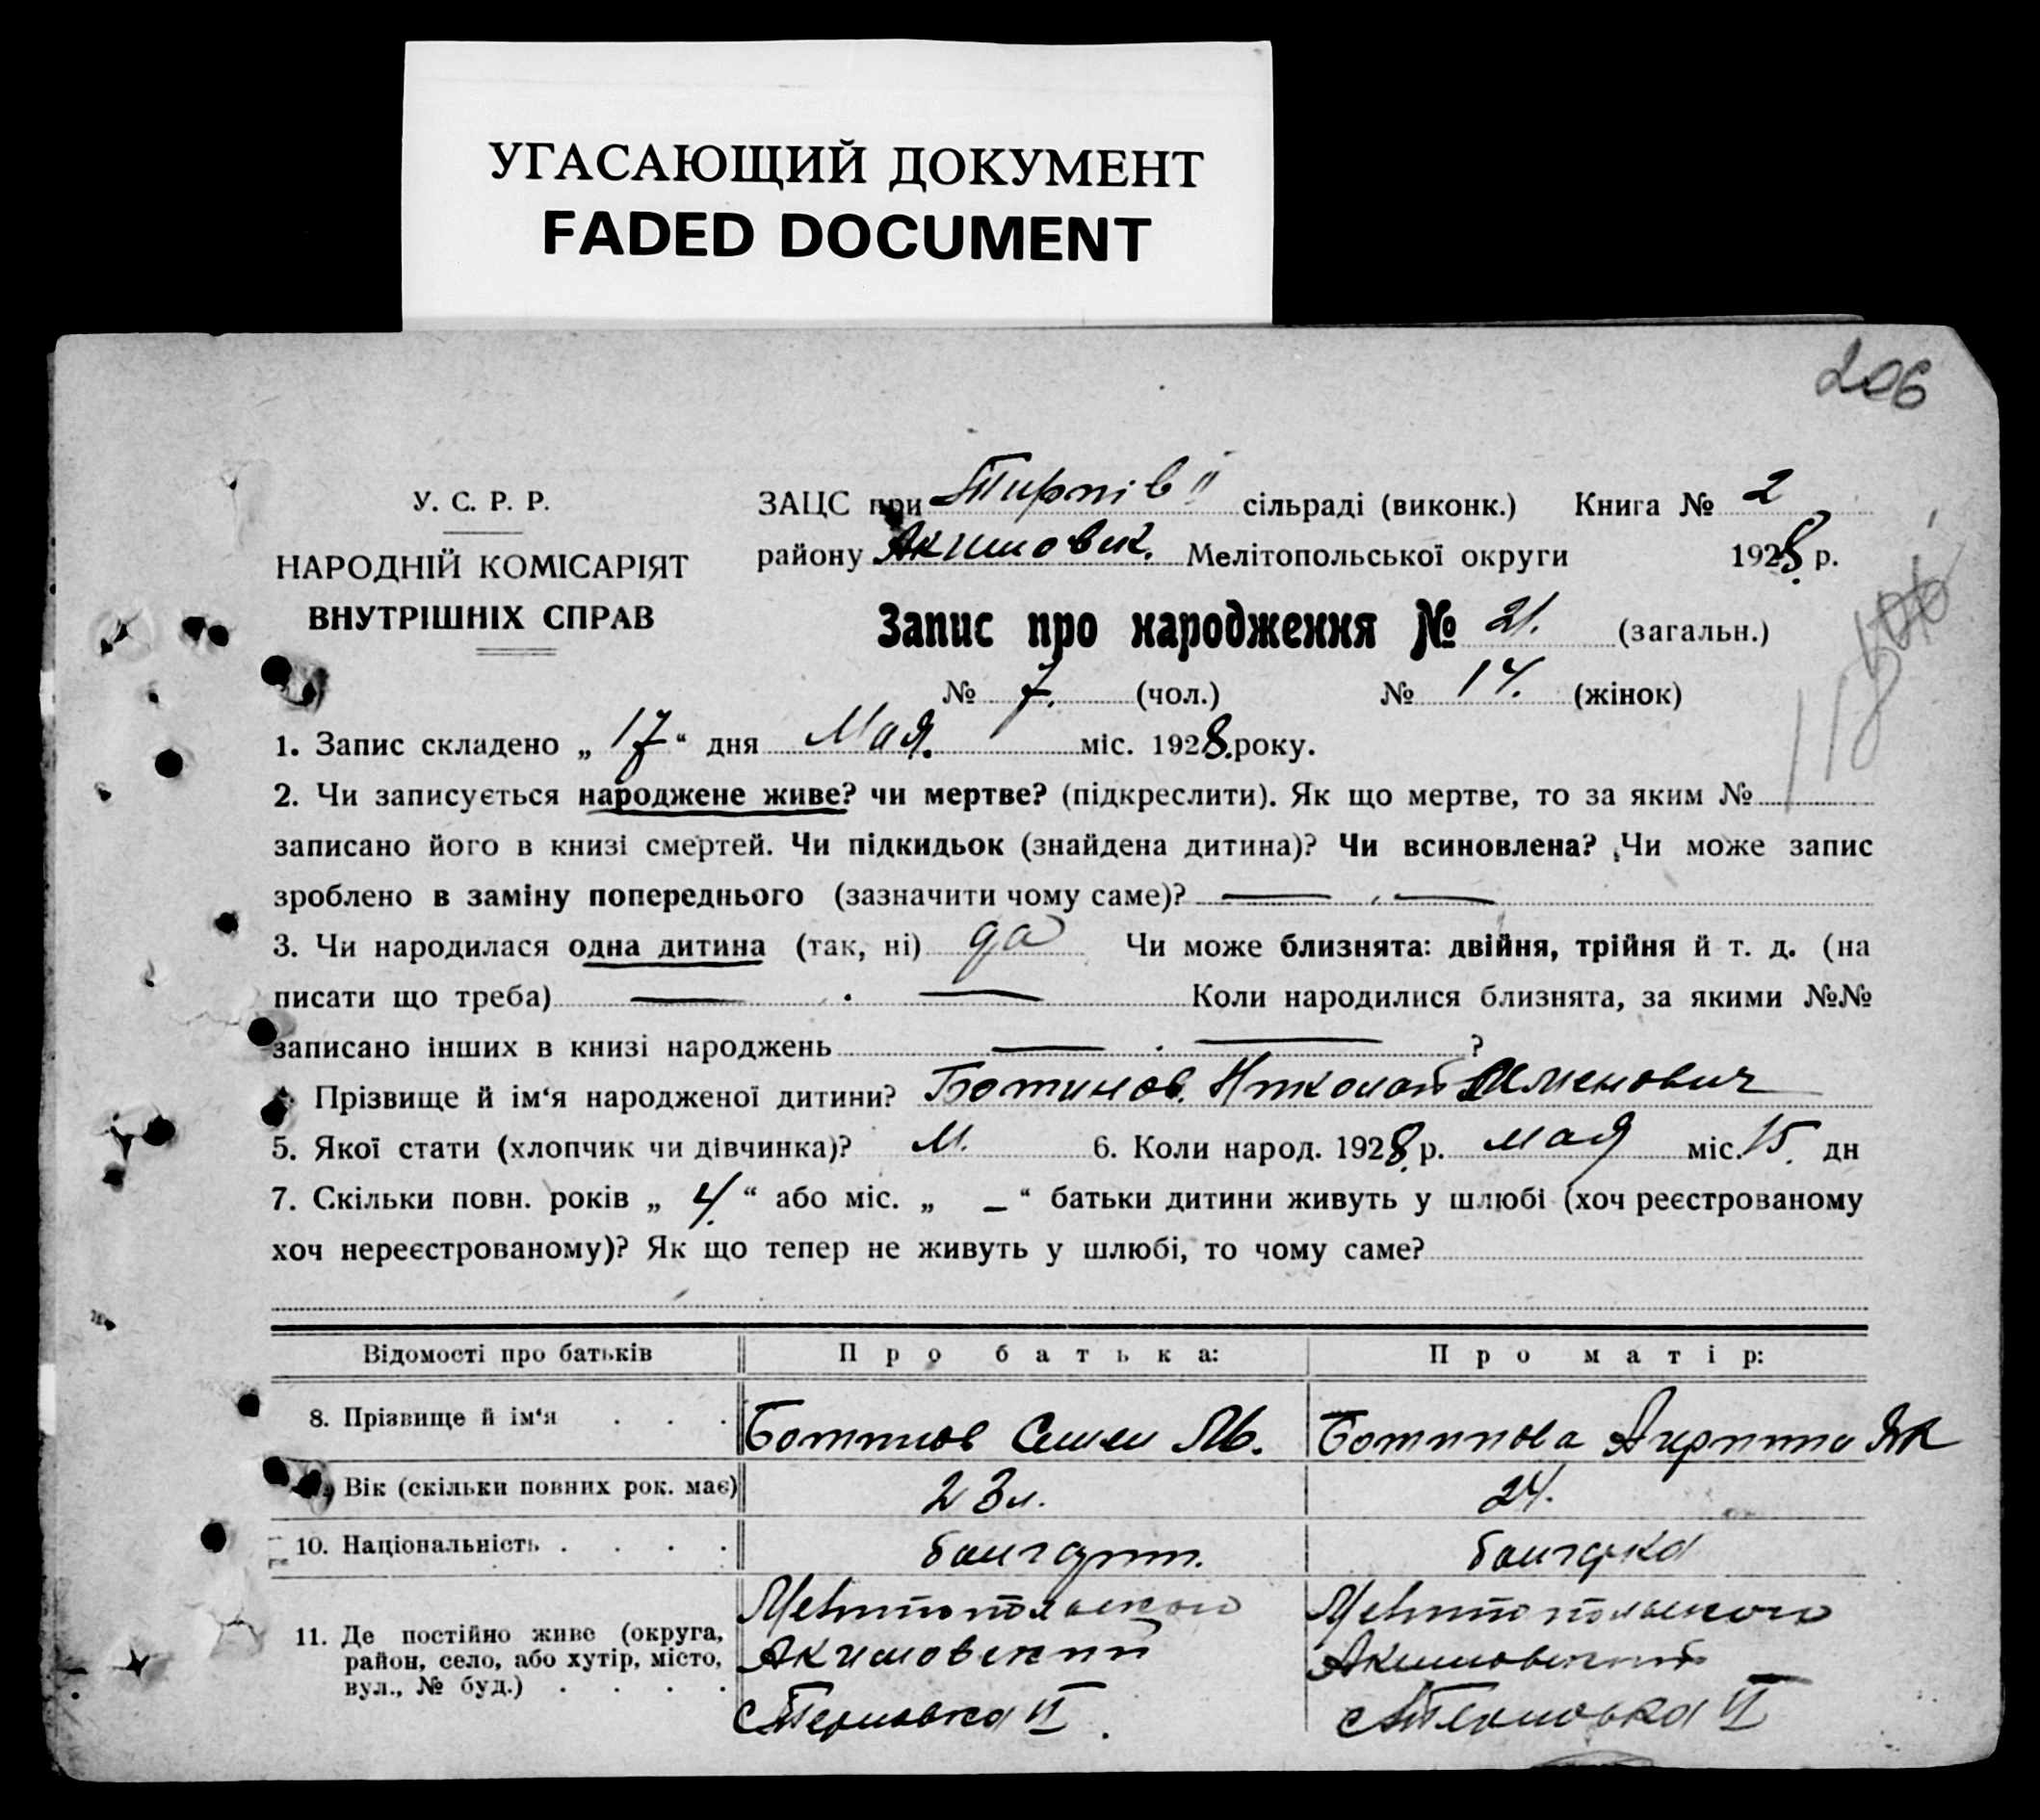 УГАСАЮЩИЙ ДОКУМЕНТ
FADED DOCUMENT
206
У. С. Р. Р.
НАРОДНІЙ КОМІСАРІЯТ
ВНУТРІШНІХ СПРАВ
ЗАЦС при Тирнів II сільраді (виконк.) Книга № 2
району Акимовск. Мелітопольської округи 1928 р.
Запис про народження № 21. (загальн.)
№ 7. (чол.) № 14. (жінок)
118
1. Запис складено „ 17 “ дня Мая. міс. 1928. року.
2. Чи записується народжене живе? чи мертве? (підкреслити). Як що мертве, то за яким №
записано його в книзі смертей. Чи підкидьок (знайдена дитина)? Чи всиновлена? Чи може запис
зроблено в заміну попереднього (зазначити чому саме)? — —
3. Чи народилася одна дитина (так, ні) да Чи може близнята: двійня, трійня й т. д. (на
писати що треба) — — Коли народилися близнята, за якими №№
записано інших в книзі народжень — — ?
Прізвище й ім‘я народженої дитини? Ботинов. Николай Семенович
5. Якої стати (хлопчик чи дівчинка)? М. 6. Коли народ. 1928 р. мая міс. 15. дн
7. Скільки повн. років „ 4. “ або міс. „ – “ батьки дитини живуть у шлюбі (хоч реєстрованому
хоч нереєстрованому)? Як що тепер не живуть у шлюбі, то чому саме?
Відомості про батьків Про батька: Про матір:
8. Прізвище й ім‘я . . . Ботинов Семен Ив. Ботинова Як
Вік (скільки повних рок. має) 23 л. 24.
10. Національність . . . . болгарин. болгарка
11. Де постійно живе (округа, район, село, або хутір, місто, вул., № буд.) . . . .
Мелитопольского
Акимовский
с Терновка II.
Мелитопольского
Акимовский
с Терновка II